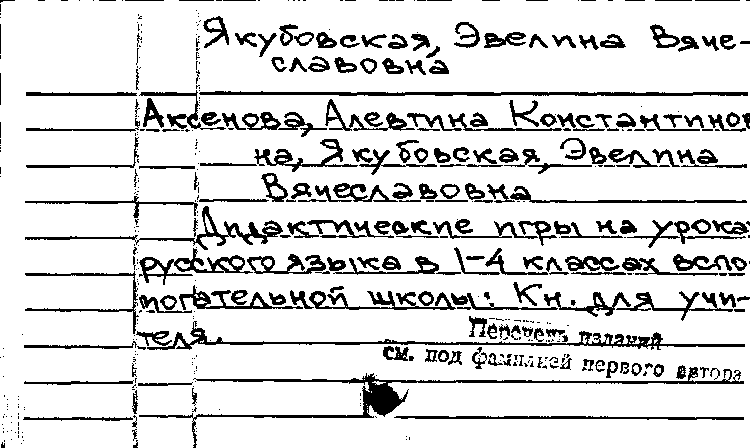 Якубовская, Эвелина Вяче-
славовна
Аксенова, Алевтина Константинов
на, Якубовская, Эвелина
Вячеславовна
Дидактические игры на урока
русского языка в 1-4 классах вспо-
могательной школы: Кн. для учи-
теля.
Перечень изданий
см. под фамилией первого автора